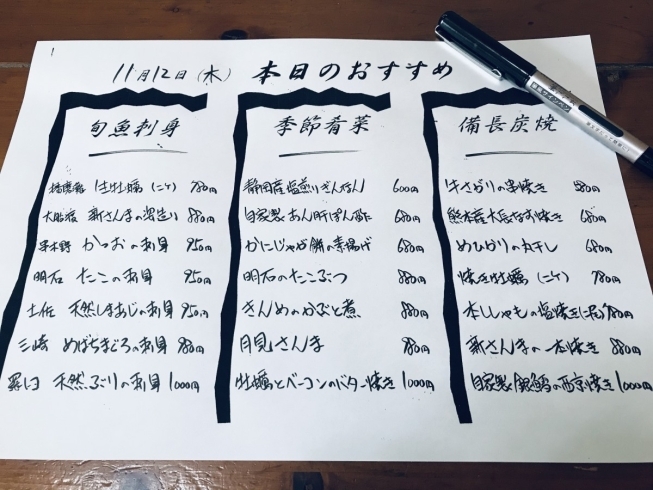 11月12日(木) 本日のおすすめ
旬魚刺身
播磨灘 生牡蠣(二ケ) 780円
新さんまの 880円
かつおの刺身 950円
明石 たこの刺身 950円
土佐 天然しまあじの刺身 950円
三崎 めばちまぐろの刺身 980円
羅臼 天然ぶりの刺身 1000円
季節肴菜
静岡産塩煎りぎんなん 600円
自家製あん肝ぽん酢 680円
かにじゃが餅の素揚げ 680円
明石のたこぶつ 880円
きんめのかぶと煮 880円
月見さんま
牡蠣とベーコンのバター焼き 1000円
備長炭焼
牛さがりの串焼き
熊本産大長なす焼き 680円
めひかりの丸干し 680円
焼き牡蠣(二ケ) 780円
本ししゃもの塩焼き(二尾) 780円
新さんまの一本焼き 880円
自家製銀鱈の西京焼き 1000円